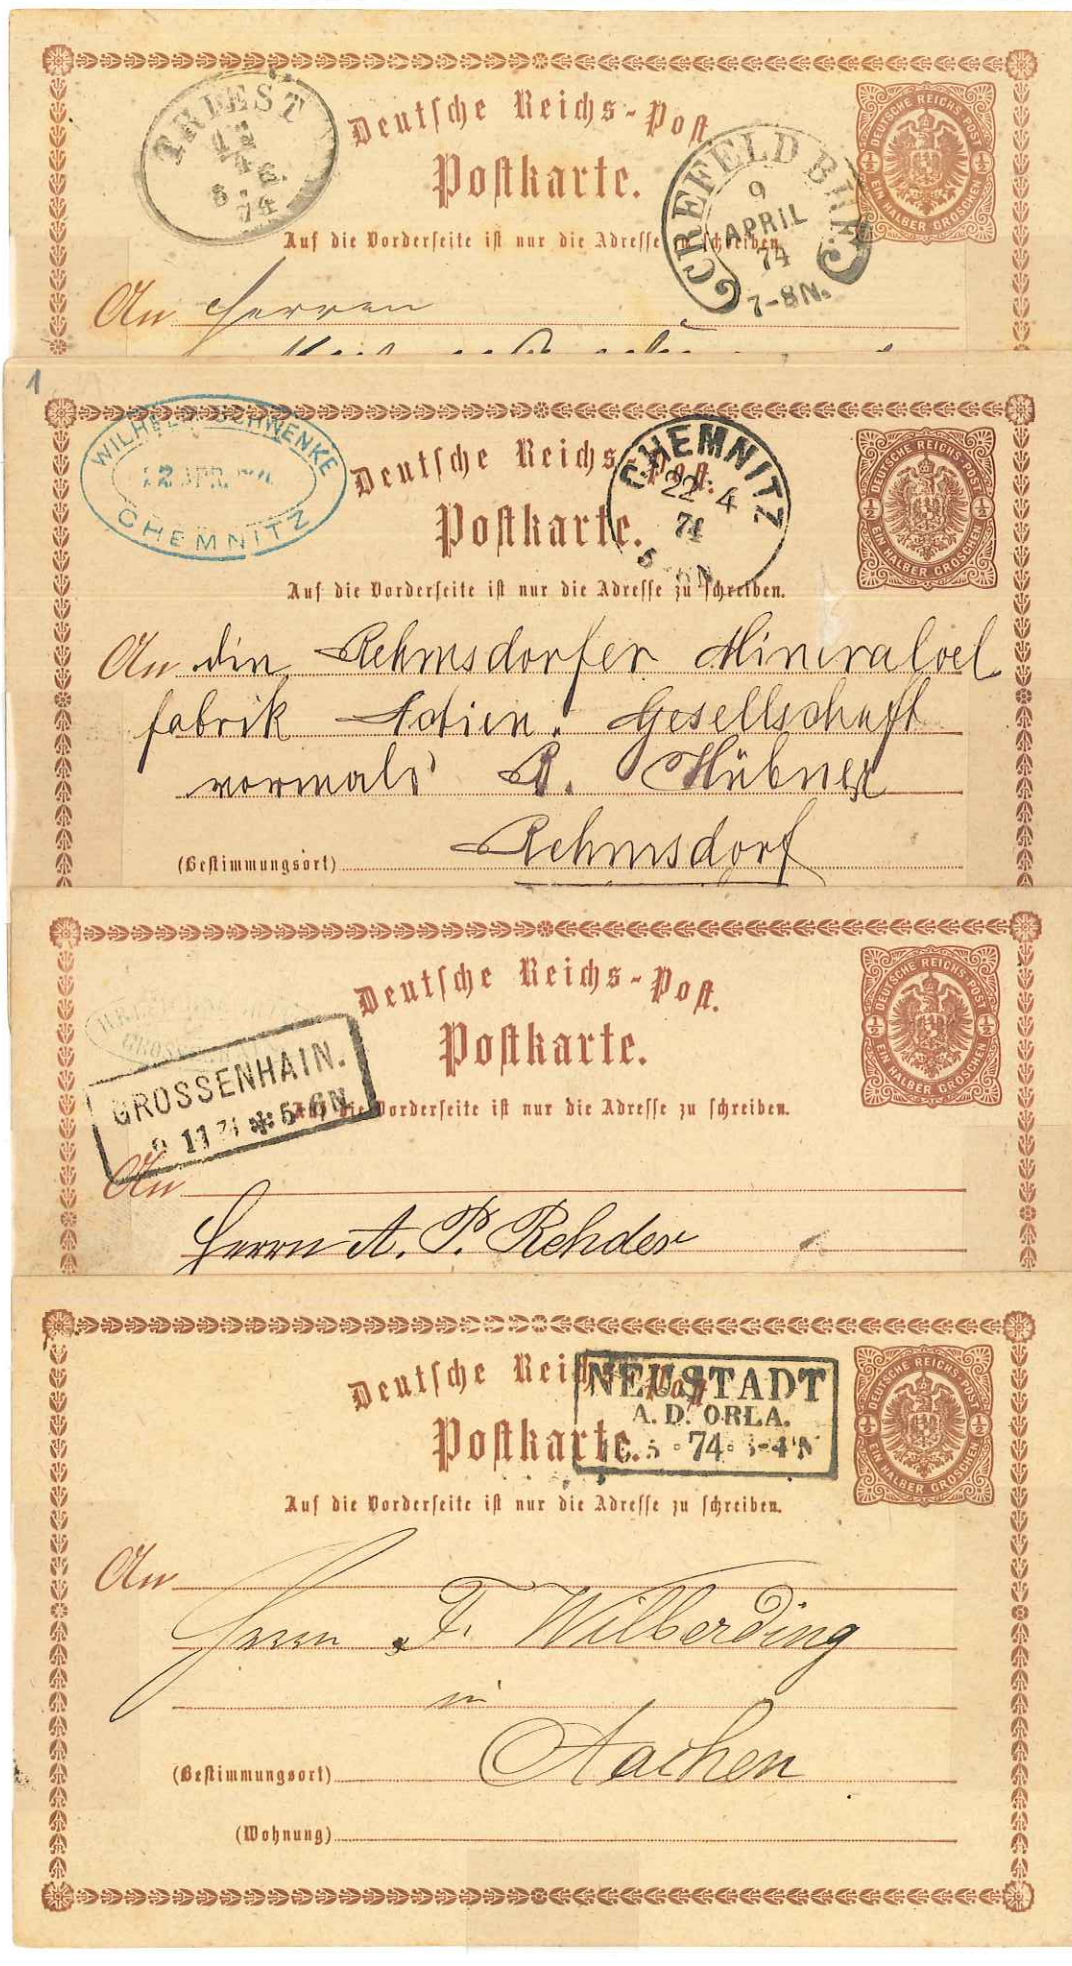 TRIEST
74
Deutsche Reichs-Post
Postkarte.
CREFELD BHF.
9
APRIL
74
7-8N.
DEUTSCHE REICHS-POST
½ ½
EIN HALBER GROSCHEN
Auf die Vorderseite ist nur die Adresse zu schreiben.
An Herren
1
WILHELM SCHWENKE
22 APR.
CHEMNITZ
Deutsche Reichs-Post.
Postkarte.
CHEMNITZ
22 4
74
DEUTSCHE REICHS-POST
½ ½
EIN HALBER GROSCHEN
Auf die Vorderseite ist nur die Adresse zu schreiben.
An die Rehmsdorfer Mineraloel
fabrik Actien. Gesellschaft
vormals R. Hübner
(Bestimmungsort) Rehmsdorf
Deutsche Reichs-Post.
Postkarte.
DEUTSCHE REICHS-POST
½ ½
EIN HALBER GROSCHEN
GROSSENHAIN
GROSSENHAIN.
11 74 * 5-6N
Auf die Vorderseite ist nur die Adresse zu schreiben.
An
Herrn A. P. Rehder
Deutsche Reichs-Post
Postkarte.
NEUSTADT
A. D. ORLA.
5 74 3-4N
DEUTSCHE REICHS-POST
½ ½
EIN HALBER GROSCHEN
Auf die Vorderseite ist nur die Adresse zu schreiben.
An
Herrn F. Wilberding
in
(Bestimmungsort) Aachen
(Wohnung)